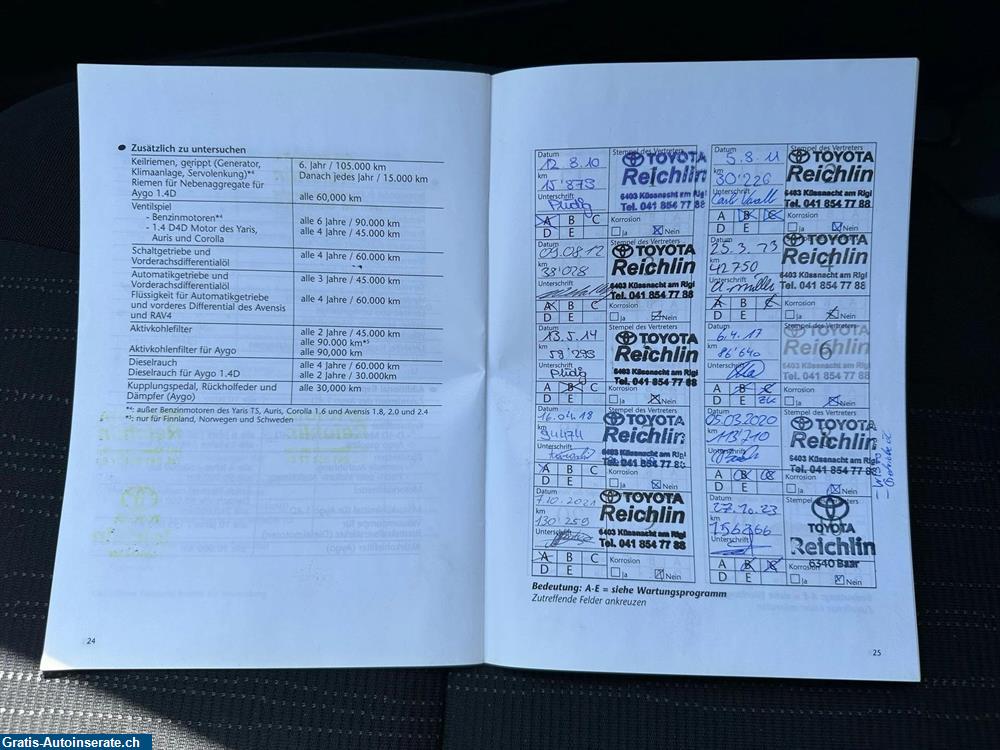 Zusätzlich zu untersuchen
Keilriemen, gerippt (Generator,
Klimaanlage, Servolenkung)*⁴
6. Jahr / 105.000 km
Danach jedes Jahr / 15.000 km
Riemen für Nebenaggregate für
Aygo 1.4D
alle 60,000 km
Ventilspiel
- Benzinmotoren*⁴
alle 6 Jahre / 90.000 km
- 1.4 D4D Motor des Yaris,
Auris und Corolla
alle 4 Jahre / 45.000 km
Schaltgetriebe und
Vorderachsdifferentialöl
alle 4 Jahre / 60.000 km
Automatikgetriebe und
Vorderachsdifferentialöl
alle 3 Jahre / 45.000 km
Flüssigkeit für Automatikgetriebe
und vorderes Differential des Avensis
und RAV4
alle 4 Jahre / 60.000 km
Aktivkohlefilter
alle 2 Jahre / 45.000 km
alle 90.000 km*⁵
Aktivkohlenfilter für Aygo
alle 90,000 km
Dieselrauch
alle 4 Jahre / 60.000 km
Dieselrauch für Aygo 1.4D
alle 2 Jahre / 30.000km
Kupplungspedal, Rückholfeder und
Dämpfer (Aygo)
alle 30,000 km
*⁴: außer Benzinmotoren des Yaris TS, Auris, Corolla 1.6 und Avensis 1.8, 2.0 und 2.4
*⁵: nur für Finnland, Norwegen und Schweden
24
Datum
12.8.10
km
15'879
Unterschrift
Stempel des Vertreters
TOYOTA
Reichlin
6403 Küssnacht am Rigi
Tel. 041 854 77 88
A B C
D E
Korrosion
Ja Nein
Datum
5.8.11
km
30'226
Unterschrift
Stempel des Vertreters
TOYOTA
Reichlin
6403 Küssnacht am Rigi
Tel. 041 854 77 88
A B C
D E
Korrosion
Ja Nein
Datum
09.08.12
km
33'028
Unterschrift
Stempel des Vertreters
TOYOTA
Reichlin
6403 Küssnacht am Rigi
Tel. 041 854 77 88
A B C
D E
Korrosion
Ja Nein
Datum
25.3.13
km
42750
Unterschrift
Stempel des Vertreters
TOYOTA
Reichlin
6403 Küssnacht am Rigi
Tel. 041 854 77 88
A B C
D E
Korrosion
Ja Nein
Datum
13.5.14
km
Unterschrift
Stempel des Vertreters
TOYOTA
Reichlin
6403 Küssnacht am Rigi
Tel. 041 854 77 88
A B C
D E
Korrosion
Ja Nein
Datum
6.4.17
km
86'640
Unterschrift
Stempel des Vertreters
TOYOTA
Reichlin
6403 Küssnacht am Rigi
Tel. 041 854 77 88
A B C
D E
Korrosion
Ja Nein
Datum
16.04.18
km
94474
Unterschrift
Stempel des Vertreters
TOYOTA
Reichlin
6403 Küssnacht am Rigi
Tel. 041 854 77 88
A B C
D E
Korrosion
Ja Nein
Datum
05.03.2020
km
113'710
Unterschrift
Stempel des Vertreters
TOYOTA
Reichlin
6403 Küssnacht am Rigi
Tel. 041 854 77 88
A B C
D E
Korrosion
Ja Nein
Datum
7.10.2021
km
130'259
Unterschrift
Stempel des Vertreters
TOYOTA
Reichlin
6403 Küssnacht am Rigi
Tel. 041 854 77 88
A B C
D E
Korrosion
Ja Nein
Datum
27.10.23
km
Unterschrift
Stempel des Vertreters
TOYOTA
Reichlin
6340 Baar
A B C
D E
Korrosion
Ja Nein
Bedeutung: A-E = siehe Wartungsprogramm
Zutreffende Felder ankreuzen
25
Gratis-Autoinserate.ch